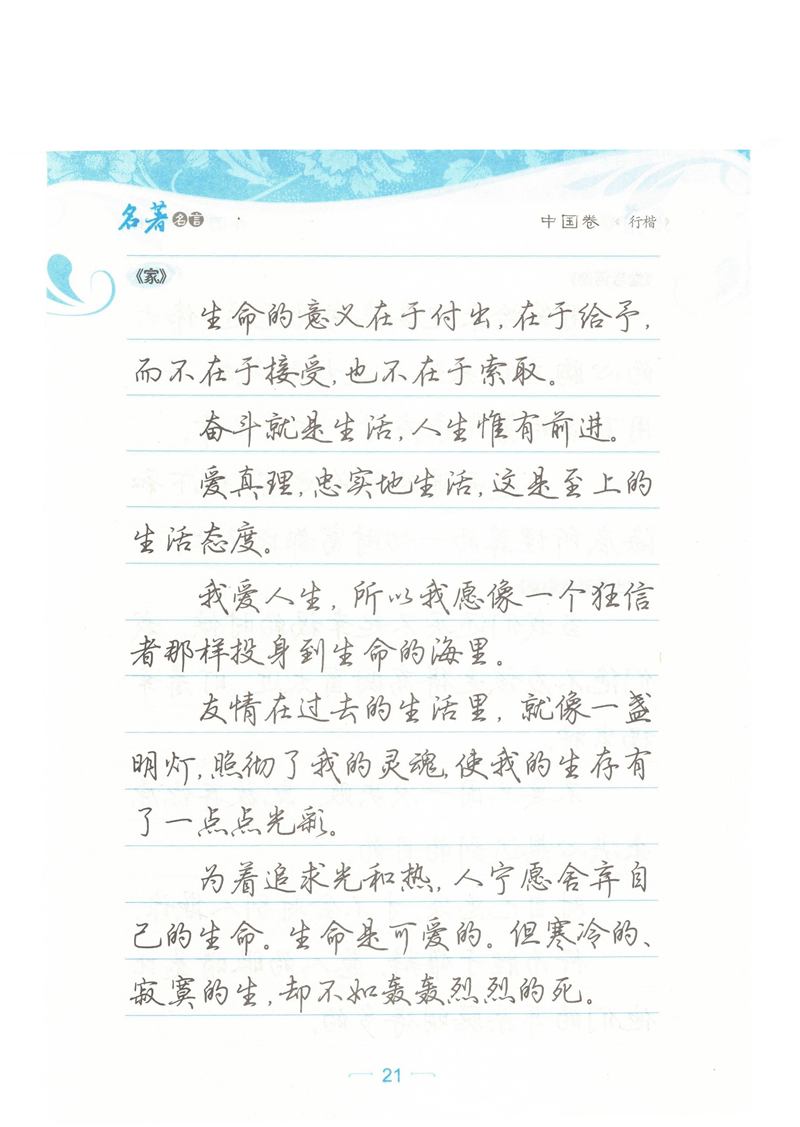 名著名言
中国卷 行楷
《家》
生命的意义在于付出，在于给予，
而不在于接受，也不在于索取。
奋斗就是生活，人生惟有前进。
爱真理，忠实地生活，这是至上的
生活态度。
我爱人生，所以我愿像一个狂信
者那样投身到生命的海里。
友情在过去的生活里，就像一盏
明灯，照彻了我的灵魂，使我的生存有
了一点点光彩。
为着追求光和热，人宁愿舍弃自
己的生命。生命是可爱的。但寒冷的、
寂寞的生，却不如轰轰烈烈的死。
21